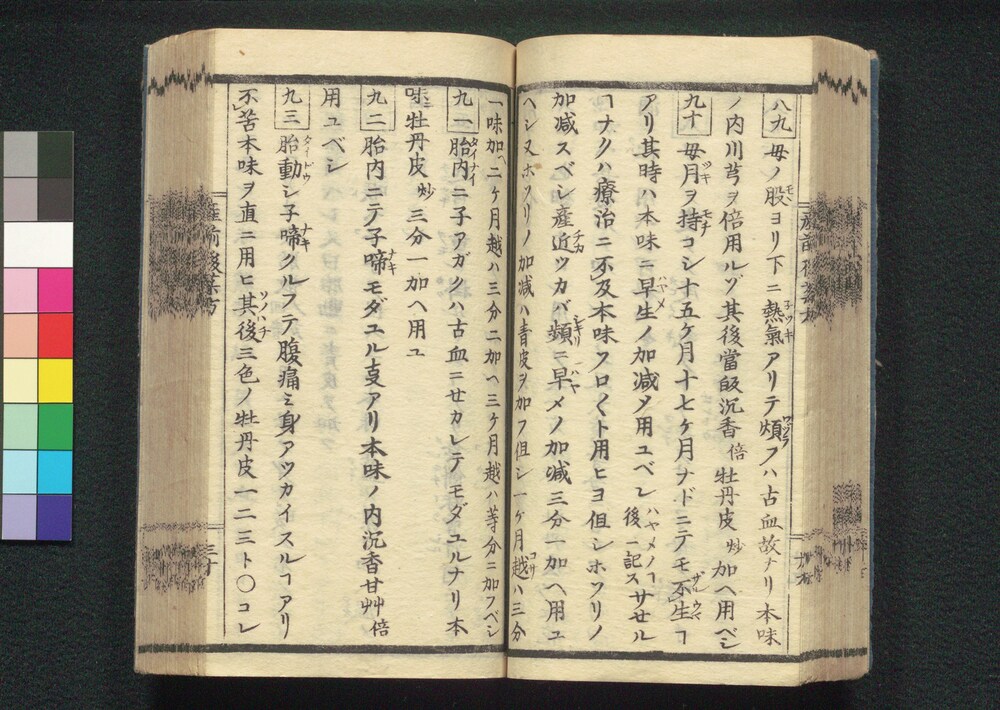 八九 毋ノ股ヨリ下ニ熱氣アリテ煩フハ古血故ナリ本味
ノ内川芎ヲ倍用ルゾ其後當皈沉香倍牡丹皮炒加ヘ用ベシ
九十 毋月ヲ持コシ十五ケ月十七ケ月ナドニテモ不生ヿ
アリ其時ハ本味ニ早生ノ加减メ用ユベシハヤメノヿ後ニ記スサセル
ヿナクハ療治ニ不及本味フロ〱ト用ヒヨ但シホソリノ
加减スベシ産近ツカバ頻ニ早メノ加减三分一加ヘ用ユ
ヘシ又ホソリノ加减ハ青皮ヲ加フ但シ一ケ月越ハ三分
一味加ヘ二ケ月越ハ三分二加ヘ三ケ月越ハ等分ニ加フベシ
九一 胎内ニ子アガクハ古血ニセカレテモダユルナリ本
味ニ牡丹皮炒三分一加ヘ用ユ
九二 胎内ニテ子啼モダユル叓アリ本味ノ内沉香甘艸倍
用ユベシ
九三 胎動シ子啼クルフテ腹痛ミ身アツカイスルヿアリ
不苦本味ヲ直ニ用ヒ其後三色ノ牡丹皮一二三ト〇コレ
産前後薬方
三十